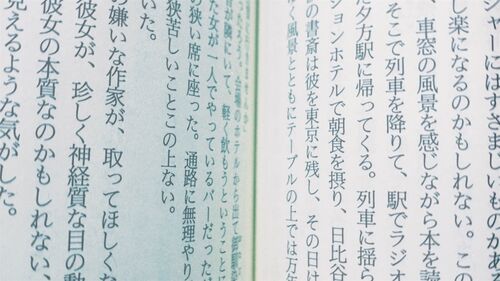 ャーにはすさまじいものがあ
し楽になるのかもしれない。この
、車窓の風景を感じながら本を読
そこで列車を降りて、駅でラジオ
た夕方駅に帰ってくる。列車に揺ら
ションホテルで朝食を摂り、日比谷
の書斎は彼を東京に残し、その日は
く風景とともにテーブルの上では万年
会場のホテルから出て
が隣にいて、軽く飲もうということに
た女が一人でやっているバーだった
の狭い席に座った。通路に無理やり
狭苦しいことこの上ない。
いた。
の嫌いな作家が、取ってほしくな
彼女が、珍しく神経質な目の動
彼女の本質なのかもしれない、
見えるような気がした。